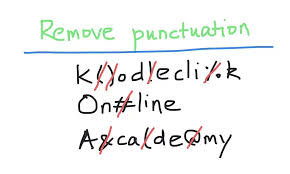 Remove punctuation
K()od!ecli%k
On#line
A&ca(de@my